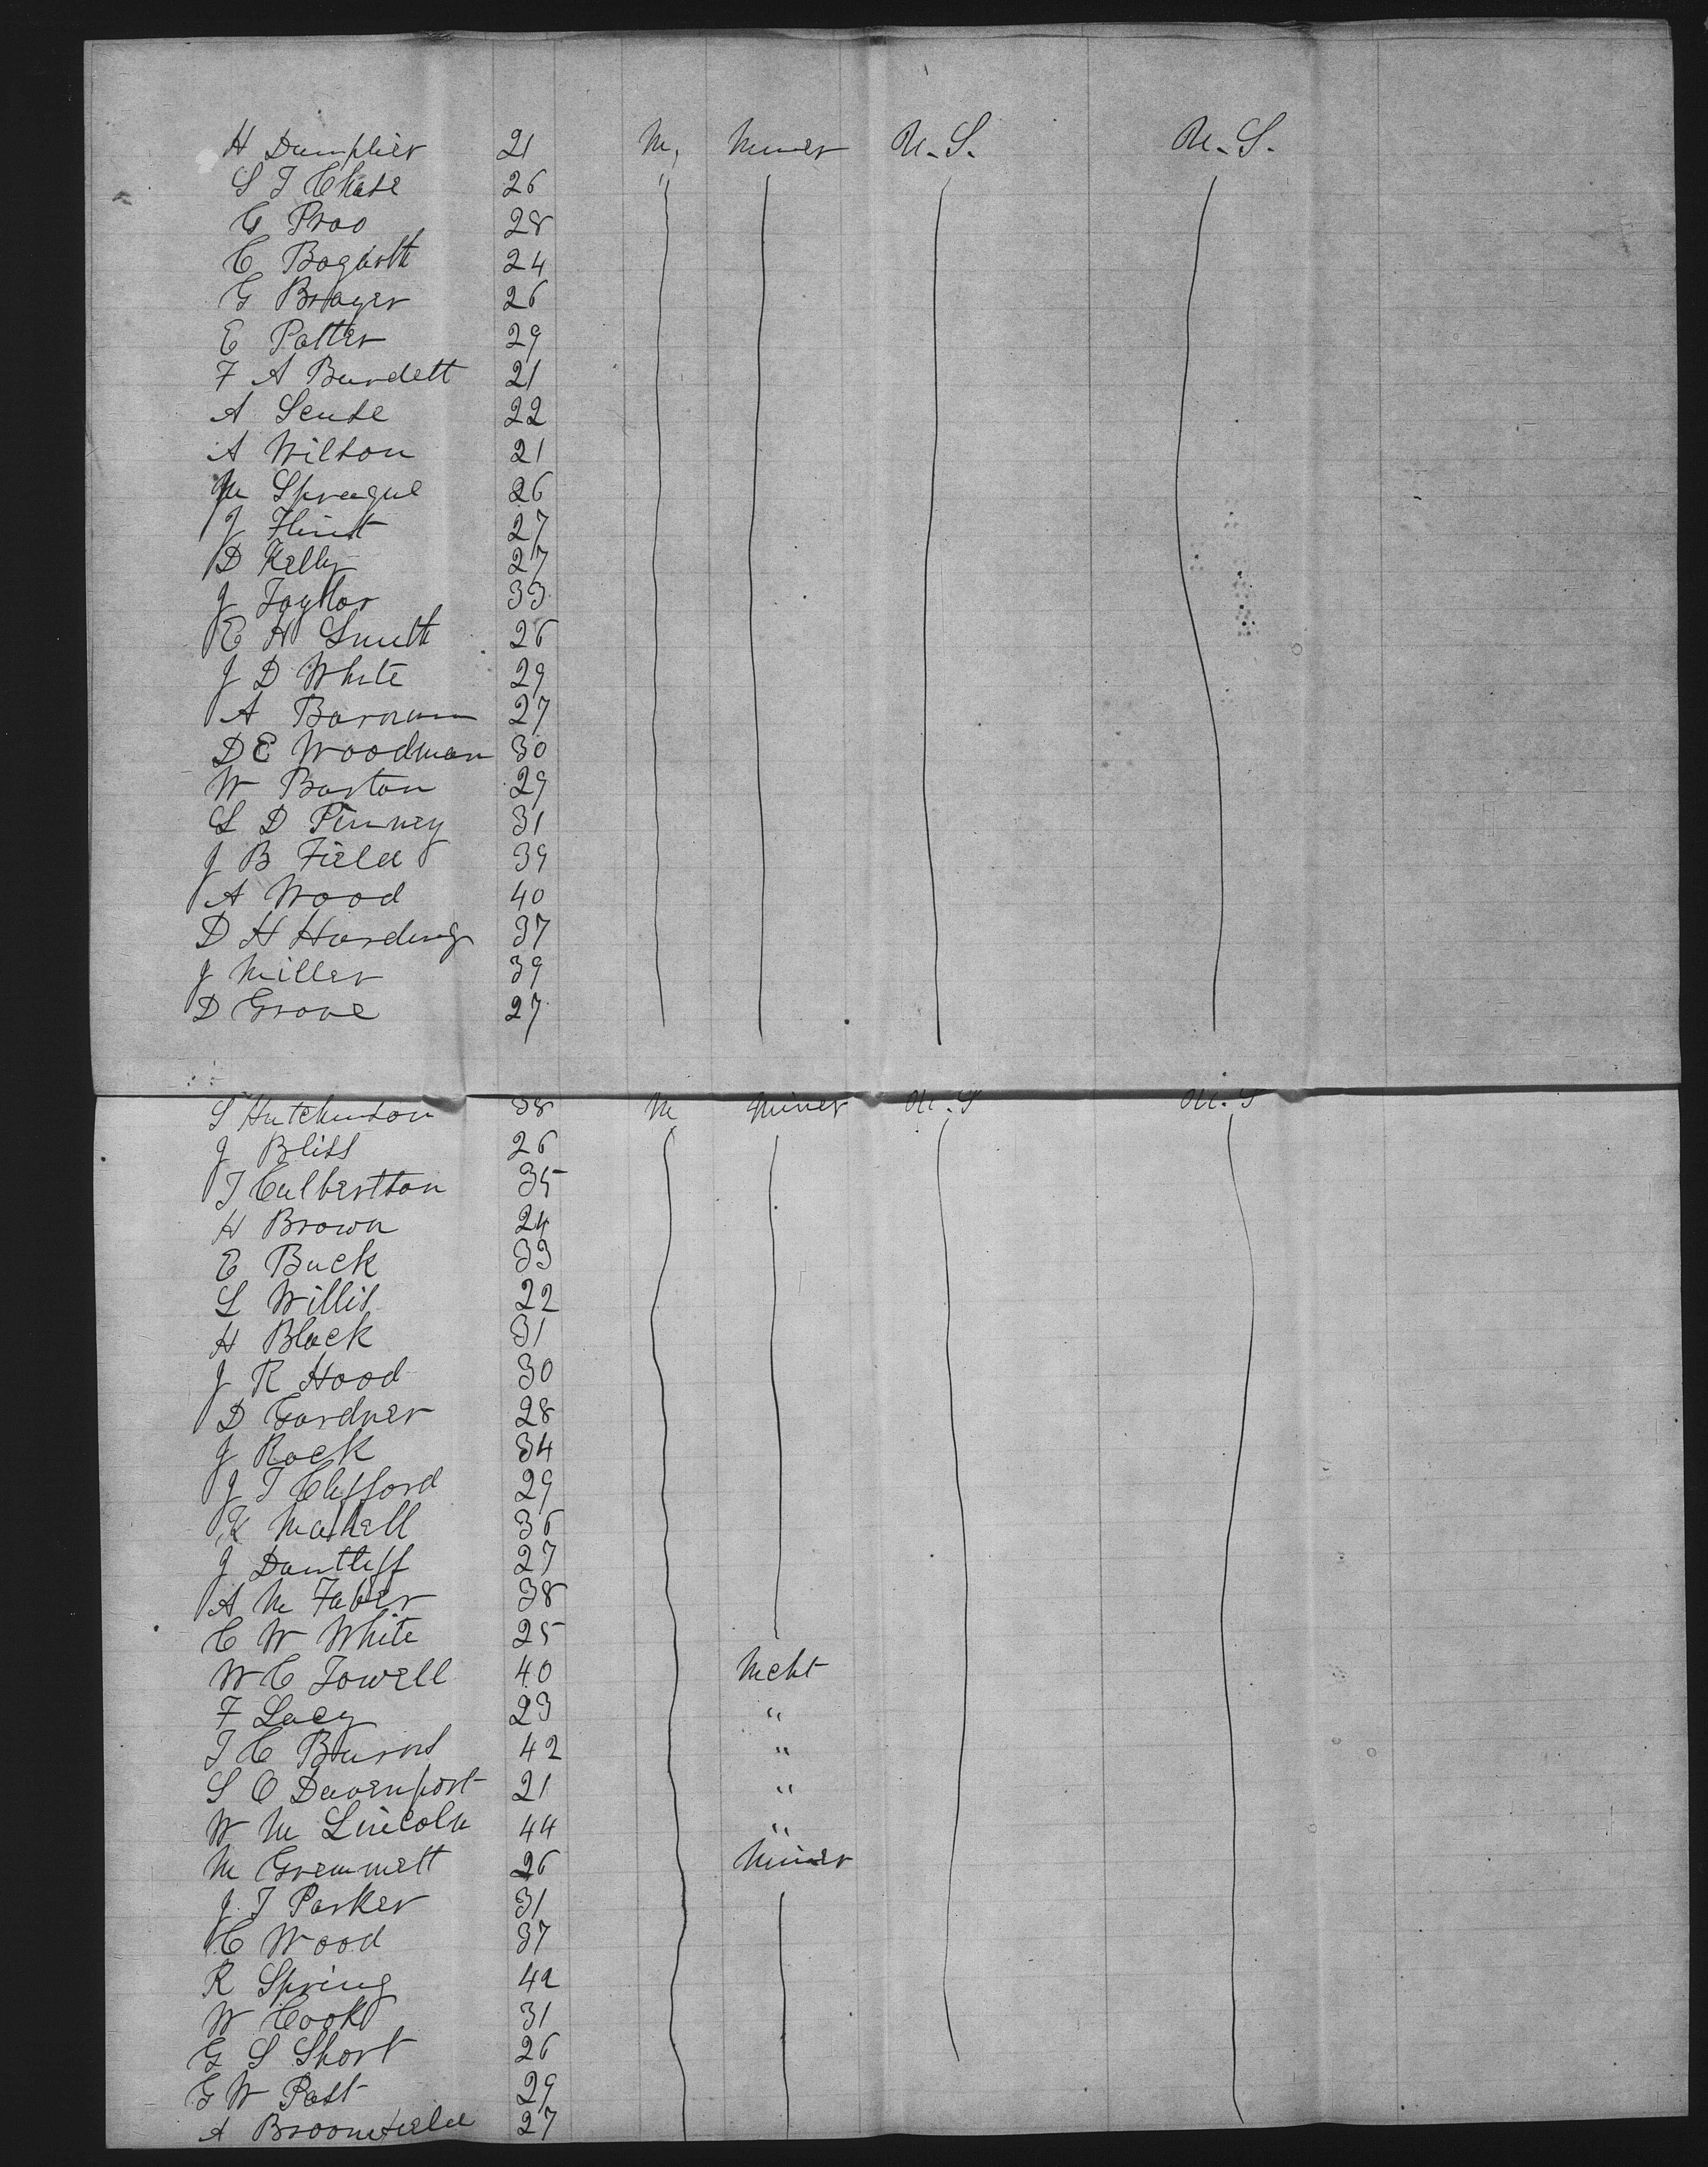 H Dumplier 21 M, Miner U.S. U.S.
S T Chase 26 "
G Proo 28
C Bogarth 24
G Brayer 26
E Potter 29
F A Burdett 21
A Seuse 22
A Wilson 21
M Sprague 26
J Flint 27
D Kelly 27
J Taylor 33
E H Smith 26
J D White 29
A Barnum 27
D E Woodman 30
W Barton 29
S D Pinney 31
J B Field 39
A Wood 40
D H Harding 37
J Miller 39
D Grove 27
S Hutchinson 38 M Miner U.S U.S
J Bliss 26
T Culbertson 35
H Brown 24
E Buck 33
S Willis 22
H Black 31
J R Hood 30
D Gardner 28
J Rock 34
J T Clifford 29
K 36
J Dantliff 27
A M Faber 38
C W White 25
W C Towell 40 Mcht
F Lacy 23 "
T C Burns 42 "
S O Davenport 21 "
W M Lincoln 44 "
M Gremmett 26 Miner
J. T Parker 31
C Wood 37
R Spring 42
W Cook 31
G S Short 26
G W Post 29
A Broomfield 27